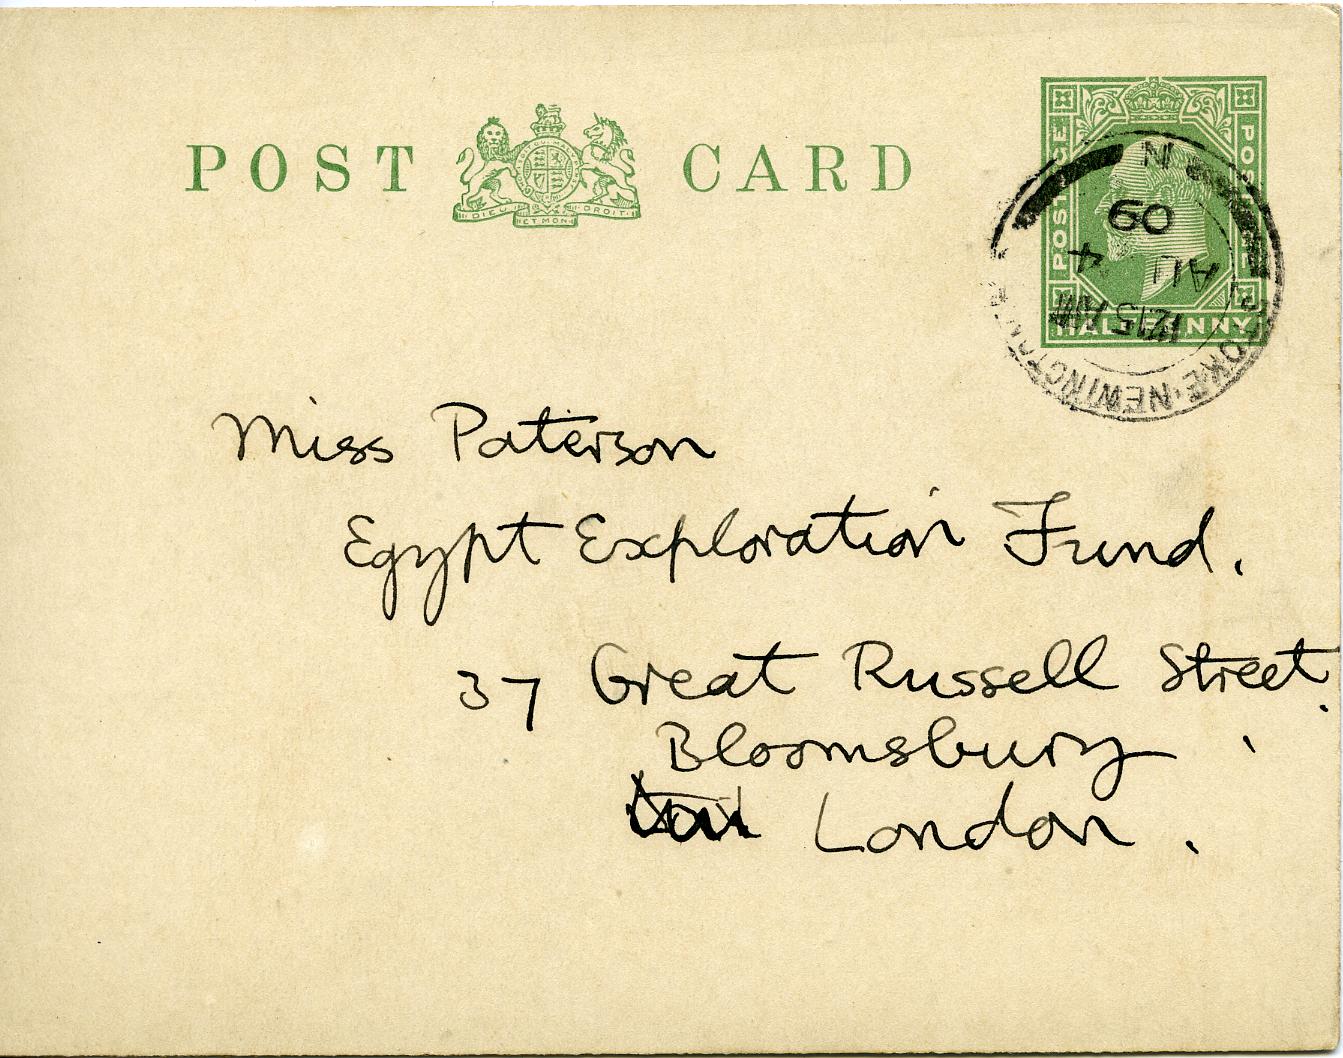 POST CARD
DIEU ET MON DROIT
POSTAGE POSTAGE
HALFPENNY
STOKE-NEWINGTON
N
12 15 AM
AU 4
09
Miss Paterson
Egypt Exploration Fund.
37 Great Russell Street.
Bloomsbury
London.